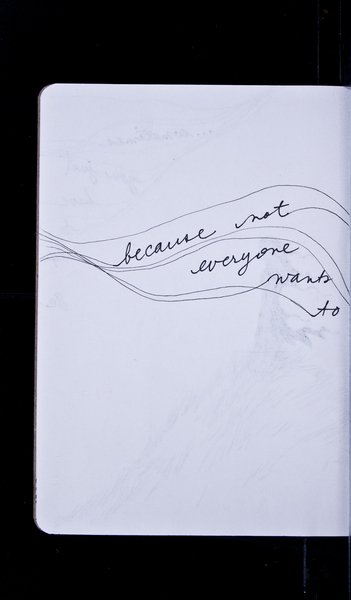 because not
everyone
wants
to